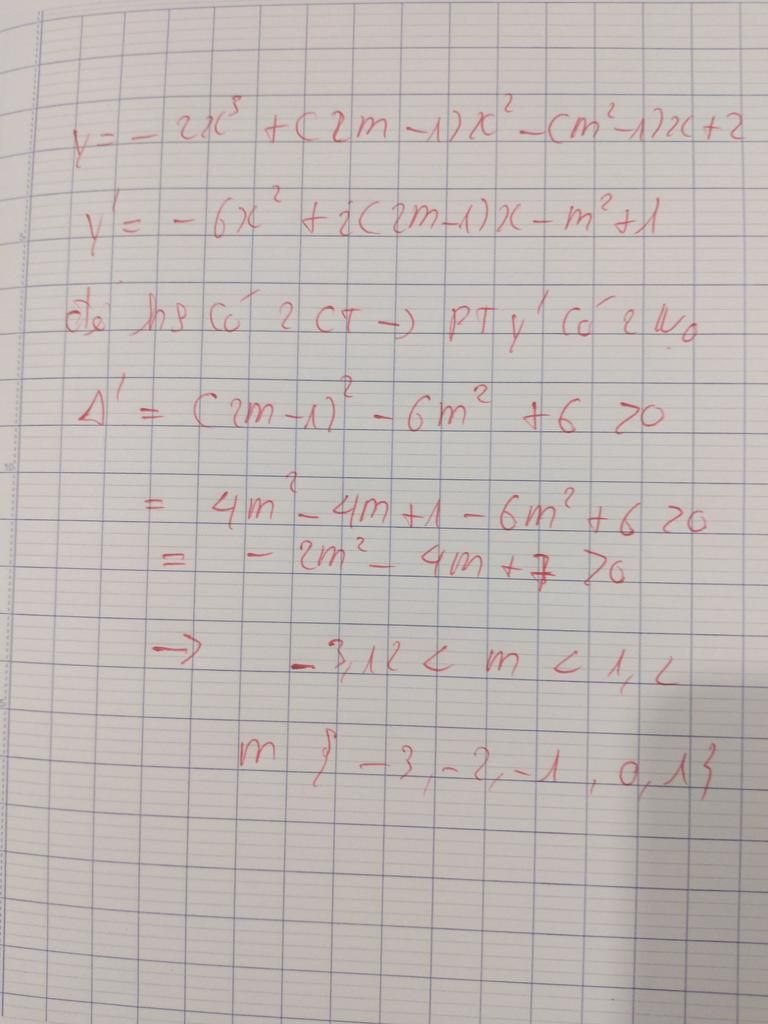 y = - 2x³ + (2m - 1)x² - (m² - 1)x + 2
y' = - 6x² + 2(2m - 1)x - m² + 1
để hs có 2 CT → PT y' có 2 No
Δ' = (2m - 1)² - 6m² + 6 > 0
= 4m² - 4m + 1 - 6m² + 6 > 0
= - 2m² - 4m + 7 > 0
→ - 3,12 < m < 1,
m { -3, -2, -1, 0, 1 }